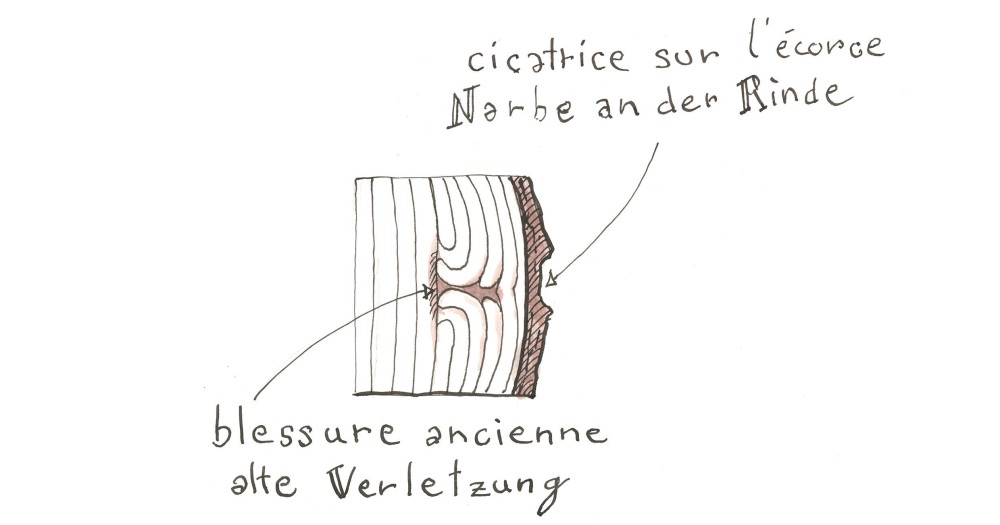 cicatrice sur l'écorce
Narbe an der Rinde
blessure ancienne
alte Verletzung